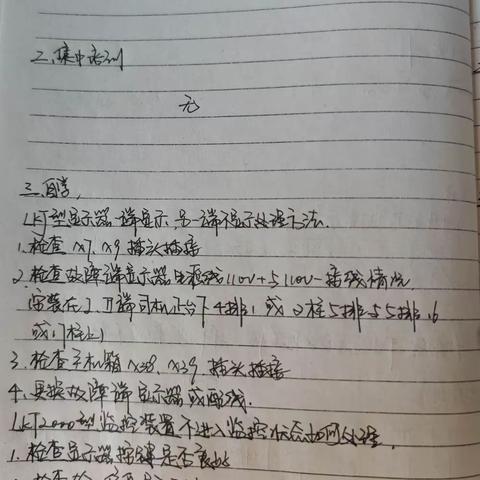 二、集中培训
无
三、自学
LKJ型显示器一端显示,另一端不显示处理方法.
1.检查 X7、X9 插头插接
2.检查故障端显示器电源线110V+与110V-接线情况.
安装在I、II端司机台下4排,1 或 2柱5排与5排,6
或门柱上)
3.检查主机箱 X38、X39 插头插接
4.更换故障端显示器或配线.
LKJ2000型监控装置不进入监控状态如何处理.
1.检查显示器按键是否